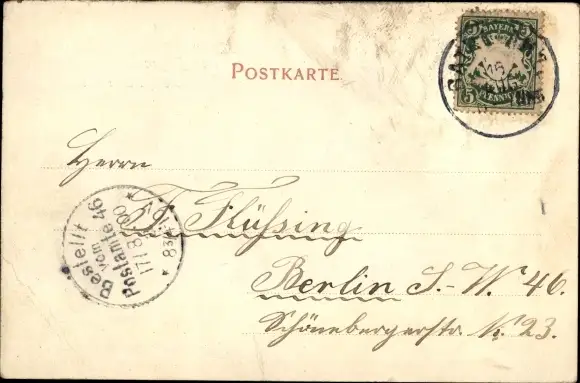 POSTKARTE
BAYERN
5 5
PFENNIG
16
AUG
Herrn
F. Flüssing
Berlin S.-W. 46.
Schönebergerstr. No. 23.
Bestellt
vom
Postamte 46
17/8 00